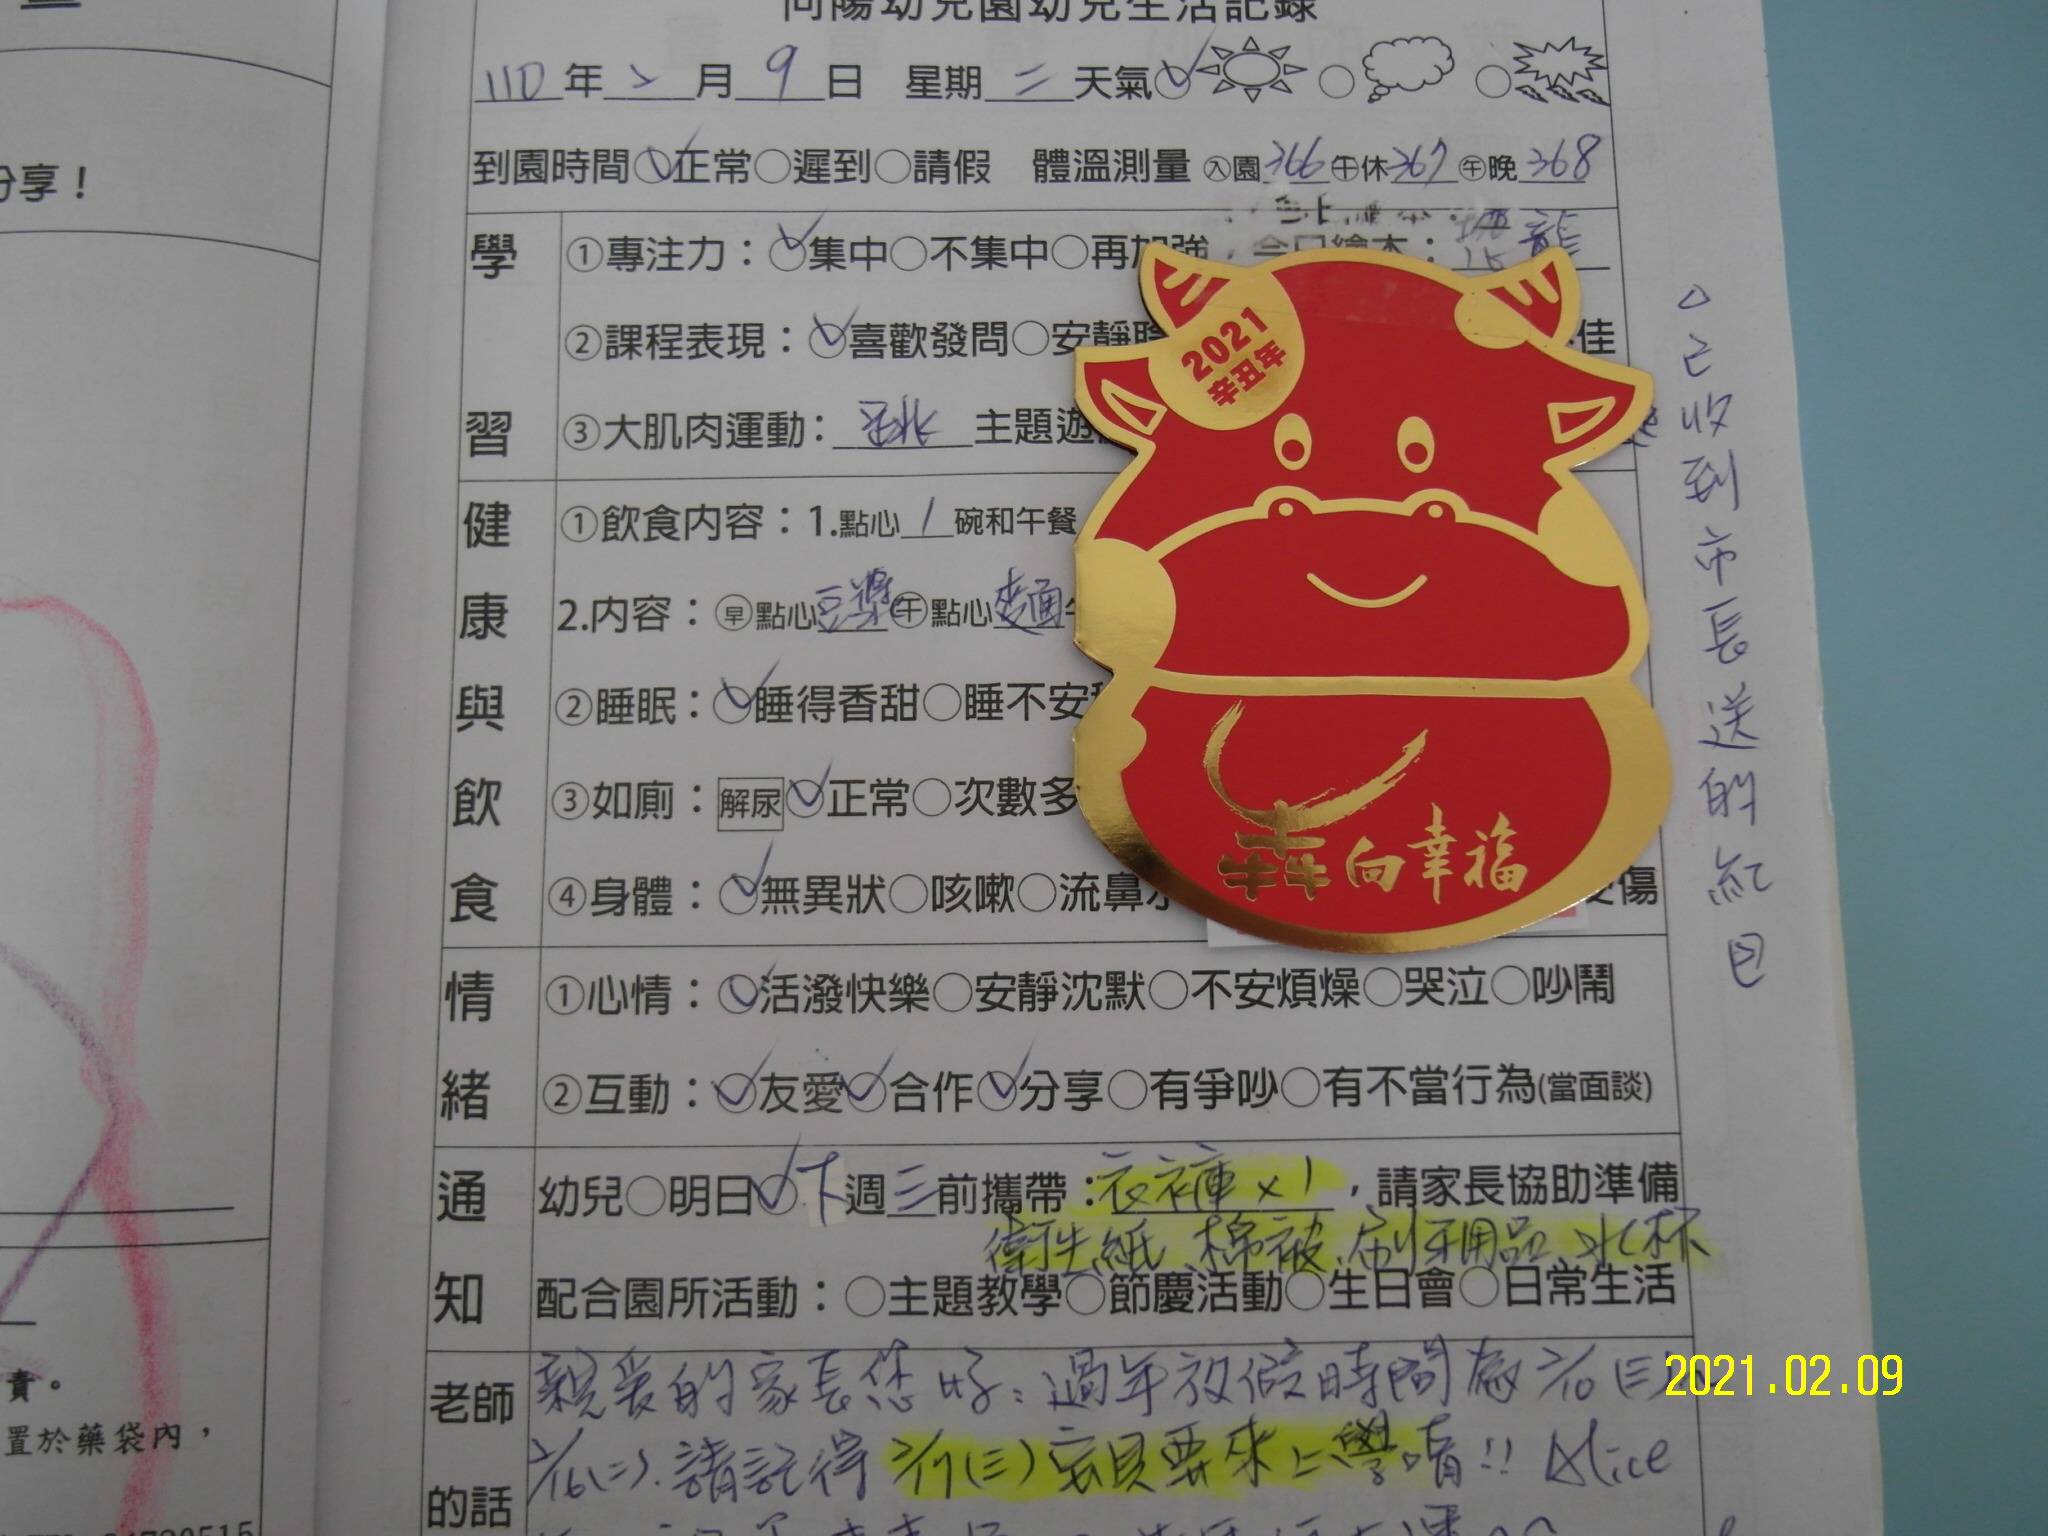 向陽幼兒園幼兒生活記錄
110年2月9日 星期二天氣
到園時間 正常○遲到○請假 體溫測量 入園366午休367午晚368
分享！
學習
①專注力：○集中○不集中○再加強，今日繪本： 龍
②課程表現：○喜歡發問○安靜 佳
③大肌肉運動： 主題遊
健康與飲食
①飲食內容：1.點心1碗和午餐
2.內容：早點心豆漿午點心麵
②睡眠：○睡得香甜○睡不安
③如廁：解尿○正常○次數多
④身體：○無異狀○咳嗽○流鼻 傷
情緒
①心情：○活潑快樂○安靜沈默○不安煩燥○哭泣○吵鬧
②互動：○友愛○合作○分享○有爭吵○有不當行為(當面談)
通知
幼兒○明日○下週三前攜帶：衣褲x1，請家長協助準備
衛生紙 棉被、刷牙用品、水杯
配合園所活動：○主題教學○節慶活動○生日會○日常生活
老師的話
親愛的家長您好：過年放假時間為2/10(三)
2/16(二)、請記得2/17(三)寶貝要來上學唷!! Alice
2021
辛丑年
犇向幸福
已收到市長送的紅包
責。
置於藥袋內，
2021.02.09